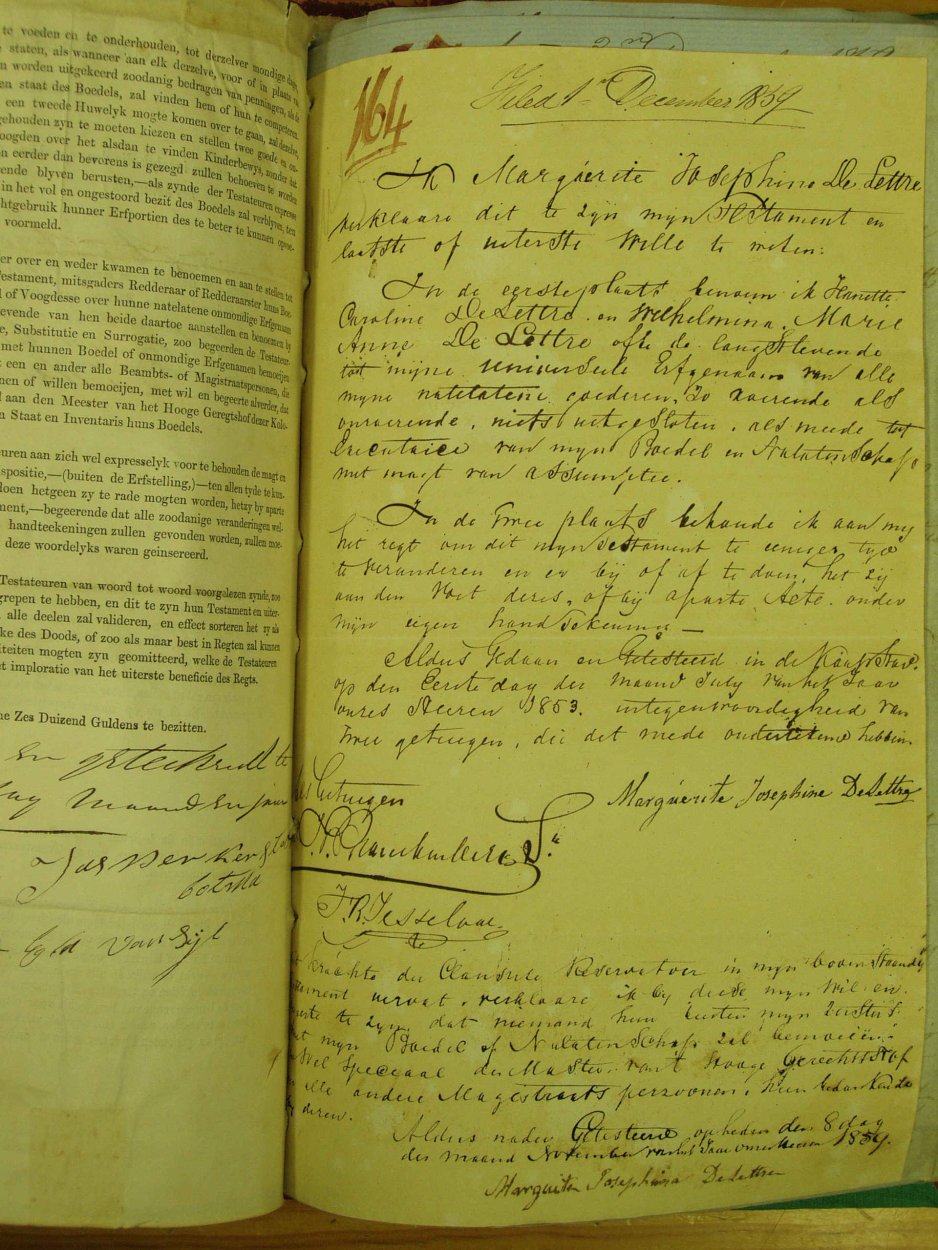 te voeden en te onderhouden, tot derzelver mondige dage,
staten, als wanneer aan elk derzelve, voor of in plaats van
n worden uitgekeerd zoodanig bedragen van penningen, als de
en staat des Boedels, zal vinden hem of hun te competeren.
een tweede Huwelyk mogte komen over te gaan, zal dezelve,
gehouden zyn te moeten kiezen en stellen twee goede en
oogden over het alsdan te vinden Kinderbewys, zonder dat
n eerder dan bevorens is gezegd zullen behoeven te worden
ende blyven berusten,—als zynde der Testateuren expresse
in het vol en ongestoord bezit des Boedels zal verblyven, ten
htgebruik hunner Erfportien des te beter te kunnen
voormeld.
er over en weder kwamen te benoemen en aan te stellen tot
estament, mitsgaders Redderaar of Redderaarster hunns Boe-
l of Voogdesse over hunne natelatene onmondige Erfgenamen
evende van hen beide daartoe aanstellen en benoemen by
e, Substitutie en Surrogatie, zoo begeerden de Testateur-
met hunnen Boedel of onmondige Erfgenamen bemoeijen
een en ander alle Beambts- of Magistraatspersonen, die
nen of willen bemoeijen, met wil en begeerte alverder, dat
l aan den Meester van het Hooge Geregtshof dezer Kolo-
n Staat en Inventaris huns Boedels.
euren aan zich wel expresselyk voor te behouden de magt en
spositie,—(buiten de Erfstelling,)—ten allen tyde te kun-
loen hetgeen zy te rade mogten worden, hetzy by aparte
ment,—begeerende dat alle zoodanige veranderingen wel-
handteekeningen zullen gevonden worden, zullen moe-
deze woordelyks waren geinsereerd.
Testateuren van woord tot woord voorgelezen zynde, zoo
grepen te hebben, en dit te zyn hun Testament en uiter-
alle deelen zal valideren, en effect sorteren het zy als
ke des Doods, of zoo als maar best in Regten zal kunnen
iteiten mogten zyn geomitteerd, welke de Testateuren
et imploratie van het uiterste beneficie des Regts.
ne Zes Duizend Guldens te bezitten.
en geteekend te
dag maand en jaar
Jasper
botma
van Zyl
164
Filed 1st December 1859
Ik Marguérite Josephine De Lettre
verklaare dit te zyn myn Testament en
laatste of uiterste Wille te weten:
In de eerste plaats benoem ik Henrietta
Caroline De Lettre en Wilhelmina Marie
Anne De Lettre ofte de langstlevende
tot mijne universeele Erfgenaam van alle
myne natelatene goederen, Zo roerende als
onroerende, niets uitgesloten, als meede tot
Executrice van myn Boedel en Nalatenschap
met magt van assumptie.
In de twee plaats behoude ik aan my
het regt om dit myn testament te eeniger tyd
te veranderen en er bij of af te doen, het zij
aan den Voet deres, of bij aparte Acte onder
mijn eigen handtekening —
Aldus Gedaan en Getesteerd in de Kaapstad.
op den Eerste dag der maand July van het Jaar
onzes Heeren 1853. in tegenwoordigheid van
twee getuigen, die dit mede ondertekend hebben.
Als Getuigen
Marguérite Josephine DeLettre
Sr.
J.R. Tesselaar
Krachte der Clausule Reservatoir in myn bovenstaande
Testament vervat, verklaare ik by deese myn wil en
te zyn, dat niemand hun buiten myn
met myn Boedel of Nalatenschap zal bemoeiën.
Wel speciaal den Master van't Hooge Gerechtshof
en alle andere Magestraats persoonen, hun bedankende
deren.
Aldus nader Getesteerd op heden den 8 dag
der maand November van het Jaar onzes Heeren 1859.
Marguérite Josephina DeLettre